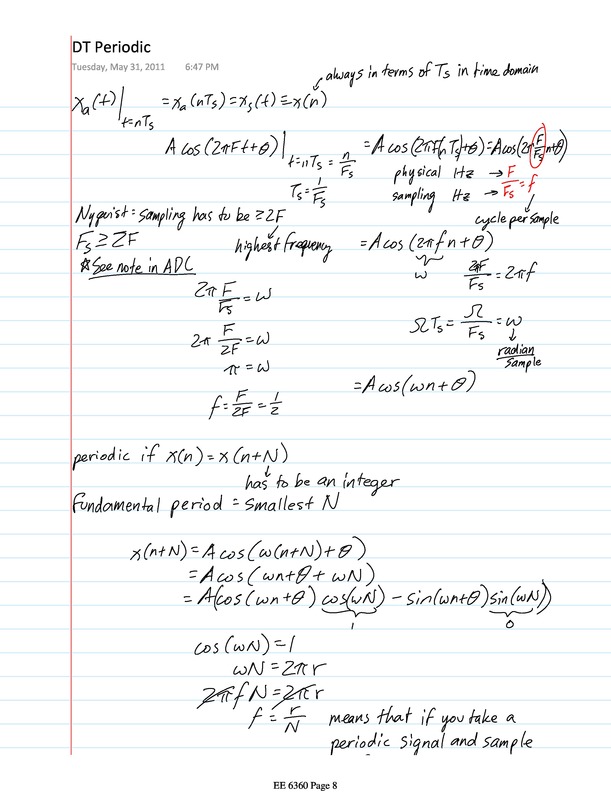 DT Periodic
Tuesday, May 31, 2011 6:47 PM
always in terms of Ts in time domain
xa(t)|t=nTs = xa(nTs) = xs(t) = x(n)
A cos(2πFt+θ)|t=nTs = n/Fs = A cos(2πF(nTs)+θ) = A cos(2π F/Fs n+θ)
Ts = 1/Fs
physical Hz → F
sampling Hz → Fs = f
cycle per sample
Nyquist: Sampling has to be ≥ 2F
Fs ≥ 2F
highest frequency
= A cos(2πfn+θ)
ω
2πF/Fs = 2πf
*See note in ADC
2π F/Fs = ω
ΩTs = Ω/Fs = ω
radian/sample
2π F/2F = ω
π = ω
= A cos(ωn+θ)
f = F/2F = 1/2
periodic if x(n) = x(n+N)
has to be an integer
Fundamental period = smallest N
x(n+N) = A cos(ω(n+N)+θ)
= A cos(ωn+θ+ωN)
= A(cos(ωn+θ) cos(ωN) - sin(ωn+θ) sin(ωN))
1 0
cos(ωN) = 1
ωN = 2πr
2πfN = 2πr
f = r/N means that if you take a
periodic signal and sample
EE 6360 Page 8